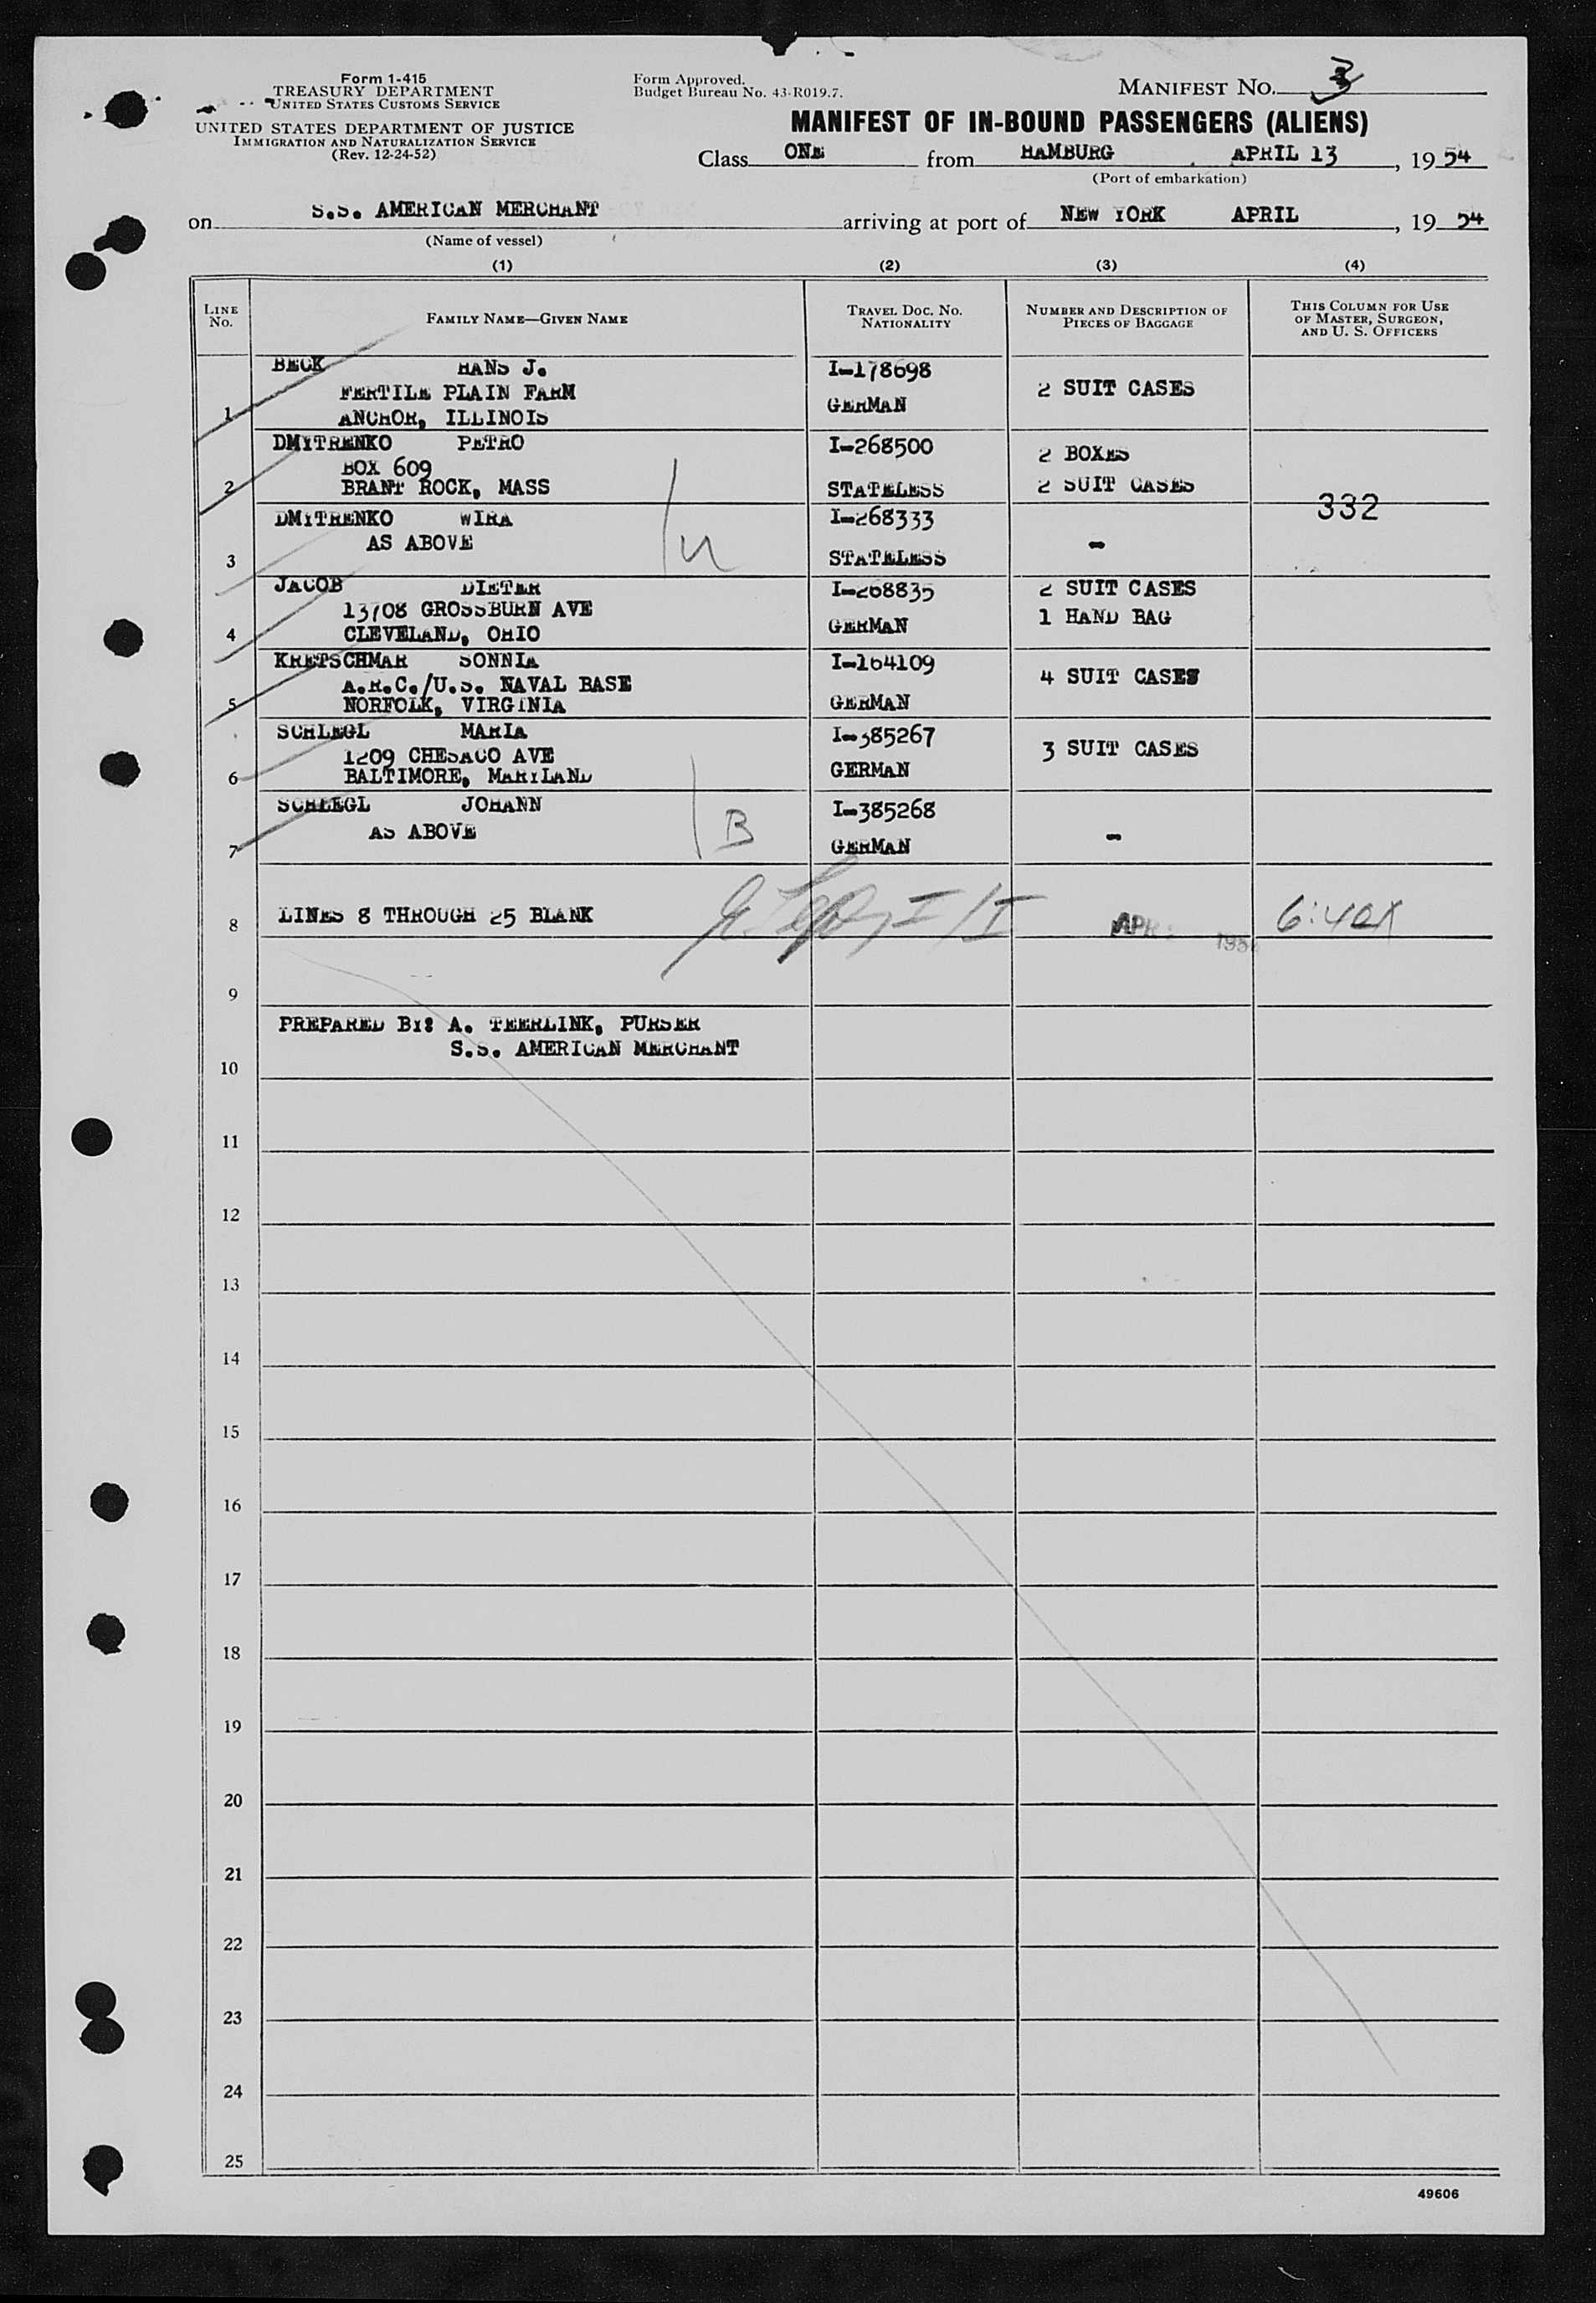 Form 1-415
TREASURY DEPARTMENT
UNITED STATES CUSTOMS SERVICE
UNITED STATES DEPARTMENT OF JUSTICE
IMMIGRATION AND NATURALIZATION SERVICE
(Rev. 12-24-52)
Form Approved.
Budget Bureau No. 43-R019.7.
MANIFEST NO. 3
MANIFEST OF IN-BOUND PASSENGERS (ALIENS)
Class ONE from HAMBURG APRIL 13, 19 54
(Port of embarkation)
on S.S. AMERICAN MERCHANT arriving at port of NEW YORK APRIL, 19 54
(Name of vessel)
(1) (2) (3) (4)
LINE No. FAMILY NAME—GIVEN NAME TRAVEL DOC. NO. NATIONALITY NUMBER AND DESCRIPTION OF PIECES OF BAGGAGE THIS COLUMN FOR USE OF MASTER, SURGEON, AND U. S. OFFICERS
BECK HANS J. I-178698
FERTILE PLAIN FARM 2 SUIT CASES
1 ANCHOR, ILLINOIS GERMAN
DMYTRENKO PETRO I-268500
BOX 609 2 BOXES
2 BRANT ROCK, MASS STATELESS 2 SUIT CASES
332
DMYTRENKO WIRA I-268333
AS ABOVE -
3 STATELESS
JACOB DIETER I-268835 2 SUIT CASES
13708 GROSSBURN AVE 1 HAND BAG
4 CLEVELAND, OHIO GERMAN
KRETSCHMAR SONNIA I-164109
A.R.C./U.S. NAVAL BASE 4 SUIT CASES
5 NORFOLK, VIRGINIA GERMAN
SCHLEGL MARIA I-385267
1209 CHESACO AVE 3 SUIT CASES
6 BALTIMORE, MARYLAND GERMAN
SCHLEGL JOHANN I-385268
AS ABOVE B -
7 GERMAN
8 LINES 8 THROUGH 25 BLANK I/I APR 195
9
PREPARED BY: A. TEERLINK, PURSER
S.S. AMERICAN MERCHANT
10
11
12
13
14
15
16
17
18
19
20
21
22
23
24
25
49606